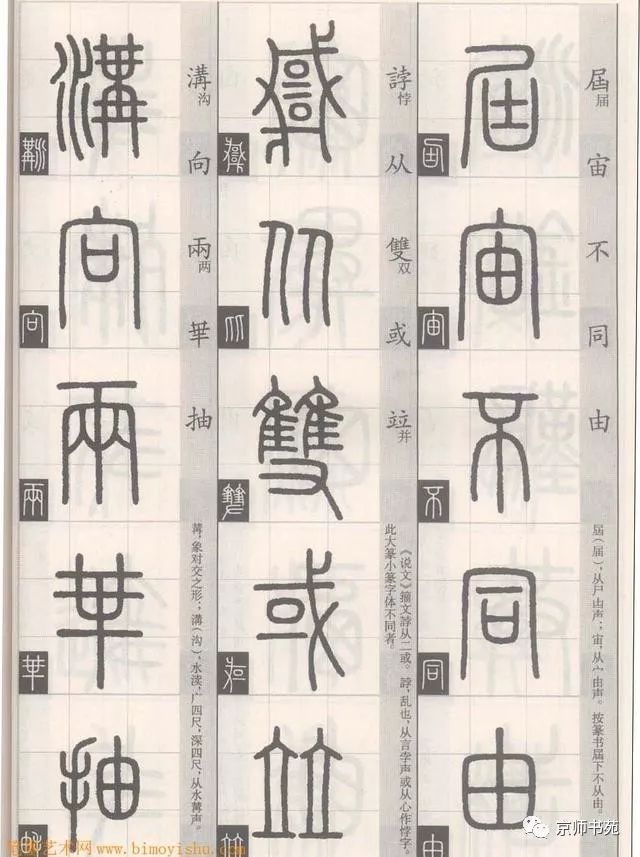 屆届
宙
不
同
由
屆（届），从尸凷声；宙，从宀由声。按篆书届下不从由，
誖悖
从
雙双
或
竝并
《说文》籀文誖从二或。誖，乱也，从言孛声或从心作悖字。
此大篆小篆字体不同者
溝沟
向
兩两
抽
冓，象对交之形；溝（沟），水渎，广四尺，深四尺，从水冓声。
京师书苑
艺术网 www.bimoyishu.com